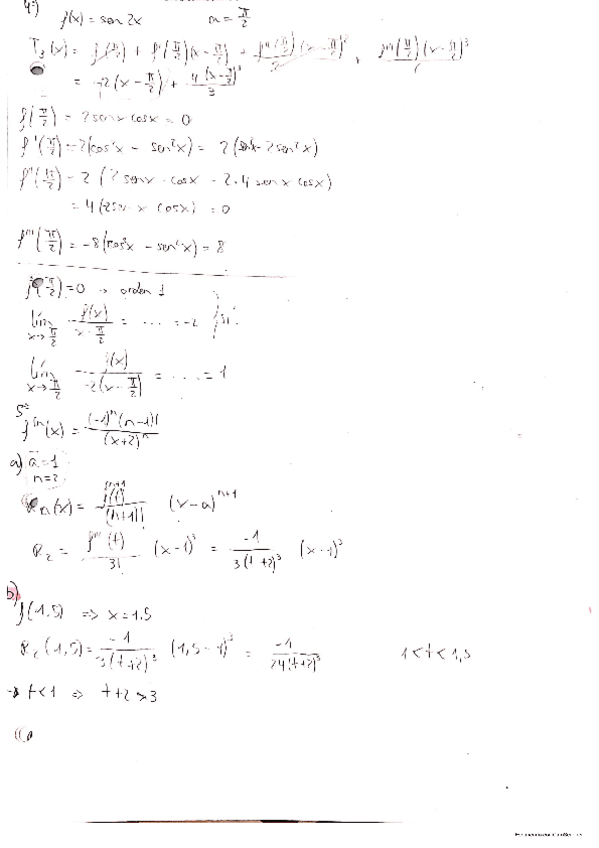 4º)
f(x) = sen 2x    a = π/2
T₃(x) = f(π/2) + f'(π/2)(x-π/2) + f''(π/2)(x-π/2)²/2 + f'''(π/2)(x-π/2)³/
= -2(x-π/2) + 4(x-π/2)³/3
f(π/2) = 2senx cosx = 0
f'(π/2) = 2(cos²x - sen²x) = 2( - 2sen²x)
f''(π/2) = 2(2senx · cosx - 2·4 senx cosx)
= 4(2senx cosx) = 0
f'''(π/2) = -8(cos²x - sen²x) = 8
f(π/2) = 0 → orden 1
lím x→π/2 f(x)/(x-π/2) = ... = -2
lím x→π/2 f(x)/(-2(x-π/2)) = ... = 1
5º
f⁽ⁿ⁾(x) = (-1)ⁿ(n-1)!/(x+2)ⁿ
a) a=1
n=2
Rₙ(x) = fⁿ⁺¹(t)/(n+1)! (x-a)ⁿ⁺¹
R₂ = f'''(t)/3! (x-1)³ = -1/3(t+2)³ (x-1)³
b)
f(1,5) => x=1.5
R₂(1,5) = -1/3(t+2)³ (1,5-1)³ = -1/24(t+2)³    1<t<1,5
→ t<1 => t+2>3